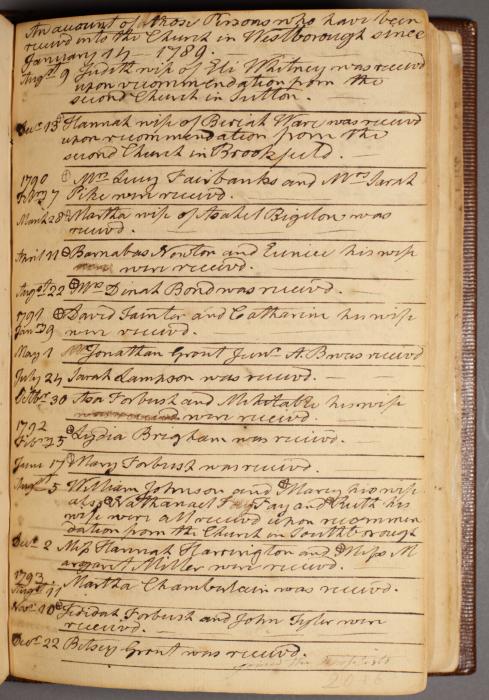 An account of those Persons who have been
receivd into the Church in Westborough since
January 14 — 1789. —
Augst 9 Judith wife of Eli Whitney was receivd
upon recommendation from the
second Church in Sutton. —
Decr 13 Hannah wife of Beriah Ware was receivd
upon recommendation from the
second Church in Brookfield. —
1790
Febry 7 Mrs Lucy Fairbanks and Mrs Sarah
Pike were receivd. —
March 28 Martha wife of Asahel Bigelow was
receivd. —
April 11 Barnabas Newton and Eunice his wife
were receivd. —
Augst 22 Mrs Dinah Bond was receivd. —
1791 David Fainter and Catharine his wife
Janr 9 were receivd. —
May 1 Mr Jonathan Grout Junr A.B was receivd
July 24 Sarah Lampson was receivd. —
Octbr 30 Asa Forbush and Mehitable his wife
were receivd. —
1792
Febr 25 Lydia Brigham was receivd. —
June 17 Mary Forbush was receivd. —
Augst 5 William Johnson and Marcy his wife
also Nathanael Fay and Ruth his
wife were all receivd upon recommen
dation from the Church in Southborough
Decr 2 Miss Hannah Harrington and Miss M
argaret Miller were receivd. —
1793.
Augst 11 Martha Chamberlain was receivd. —
Novr 10 Jedidah Forbush and John Tyler were
receivd. —
Decr 22 Betsey Grout was receivd. —